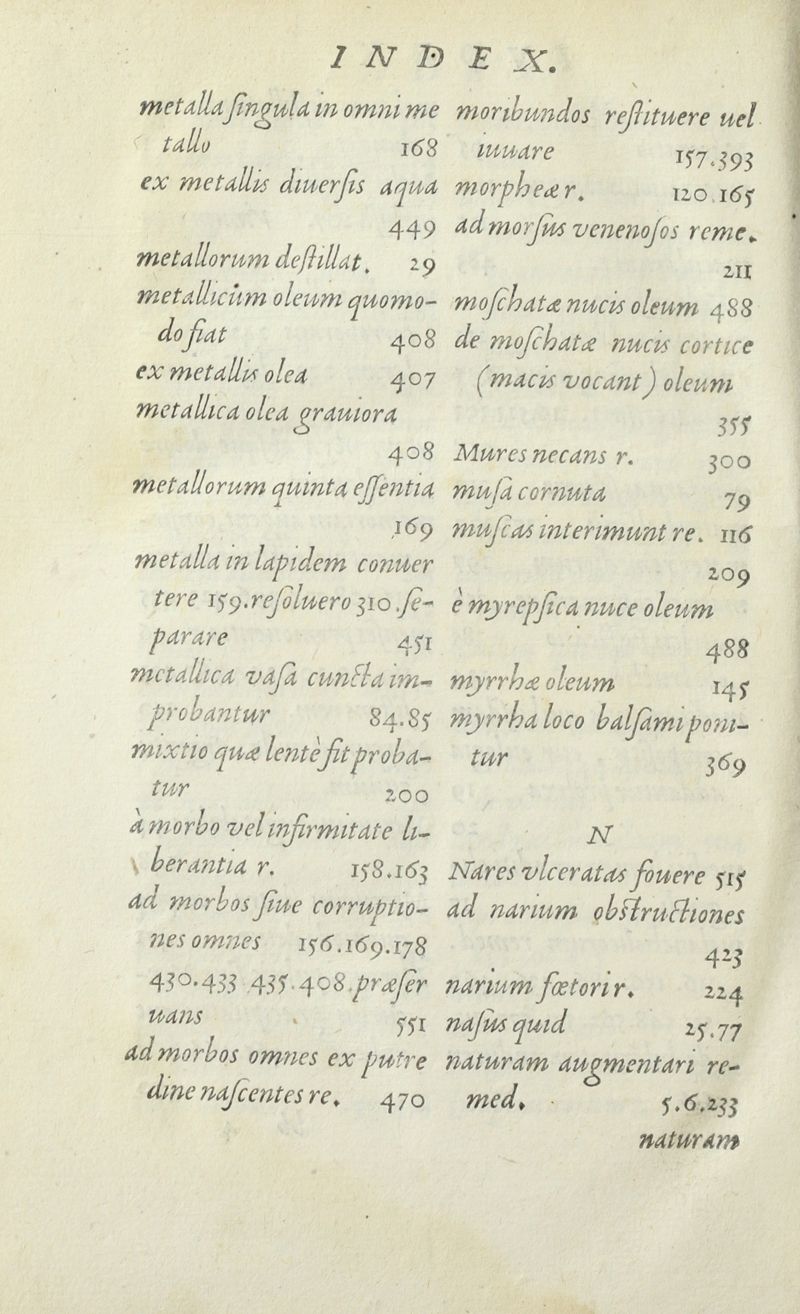 INDEX.
metalla ſingula in omni me
tallo 168
ex metallis diuerſis aqua
449
metallorum deſtillat. 29
metallicùm oleum quomo-
do fiat 408
ex metallis olea 407
metallica olea grauiora
408
metallorum quinta eſſentia
169
metalla in lapidem conuer
tere 159. reſoluero 310. ſe-
parare 451
metallica vaſa cuncta im-
probantur 84.85
mixtio quæ lentè fit proba-
tur 200
à morbo vel infirmitate li-
berantia r. 158.163
ad morbos ſiue corruptio-
nes omnes 156.169.178
430.433 435.408. præſer
uans 551
ad morbos omnes ex putre
dine naſcentes re. 470
moribundos reſtituere uel
iuuare 157.393
morpheæ r. 120.165
ad morſus venenoſos reme.
211
moſchatæ nucis oleum 488
de moſchatæ nucis cortice
(macis vocant) oleum
355
Mures necans r. 300
muſa cornuta 79
muſcas interimunt re. 116
209
è myrepſica nuce oleum
488
myrrhæ oleum 145
myrrha loco balſami poni-
tur 369
N
Nares vlceratas fouere 515
ad narium obſtructiones
423
narium fœtori r. 224
naſus quid 25.77
naturam augmentari re-
med. 5.6.233
naturam